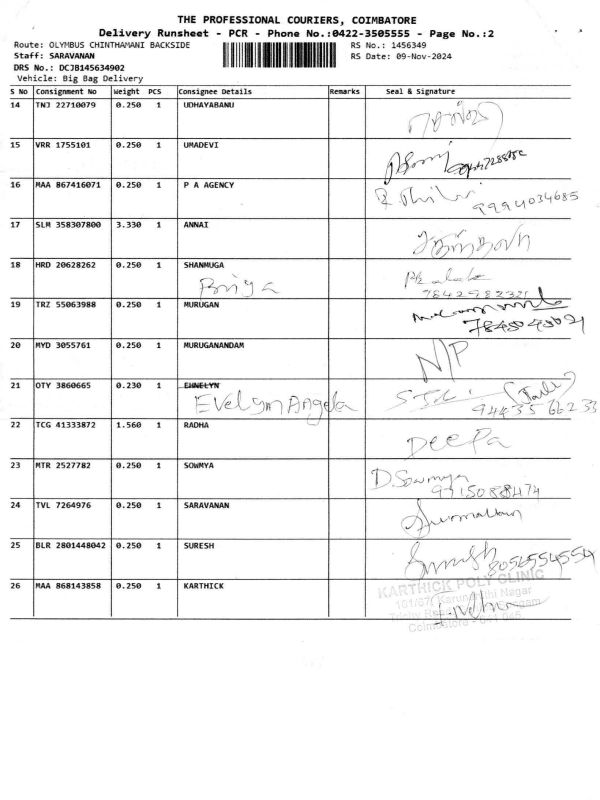 THE PROFESSIONAL COURIERS, COIMBATORE
Delivery Runsheet - PCR - Phone No.:0422-3505555 - Page No.:2
Route: OLYMBUS CHINTHAMANI BACKSIDE RS No.: 1456349
Staff: SARAVANAN RS Date: 09-Nov-2024
DRS No.: DCJB145634902
Vehicle: Big Bag Delivery
S No Consignment No Weight PCS Consignee Details Remarks Seal & Signature
14 TNJ 22710079 0.250 1 UDHAYABANU
15 VRR 1755101 0.250 1 UMADEVI
16 MAA 867416071 0.250 1 P A AGENCY
9994034685
17 SLM 358307800 3.330 1 ANNAI
18 HRD 20628262 0.250 1 SHANMUGA
Priya
7842982321
19 TRZ 55063988 0.250 1 MURUGAN
20 MYD 3055761 0.250 1 MURUGANANDAM N/P
21 OTY 3860665 0.230 1 EHNELYN
Evelyn Angela
94435 66233
22 TCG 41333872 1.560 1 RADHA DeePa
23 MTR 2527782 0.250 1 SOWMYA D. Sowmya
9715088474
24 TVL 7264976 0.250 1 SARAVANAN
25 BLR 2801448042 0.250 1 SURESH Suresh 8056554554
26 MAA 868143858 0.250 1 KARTHICK KARTHICK POLY CLINIC